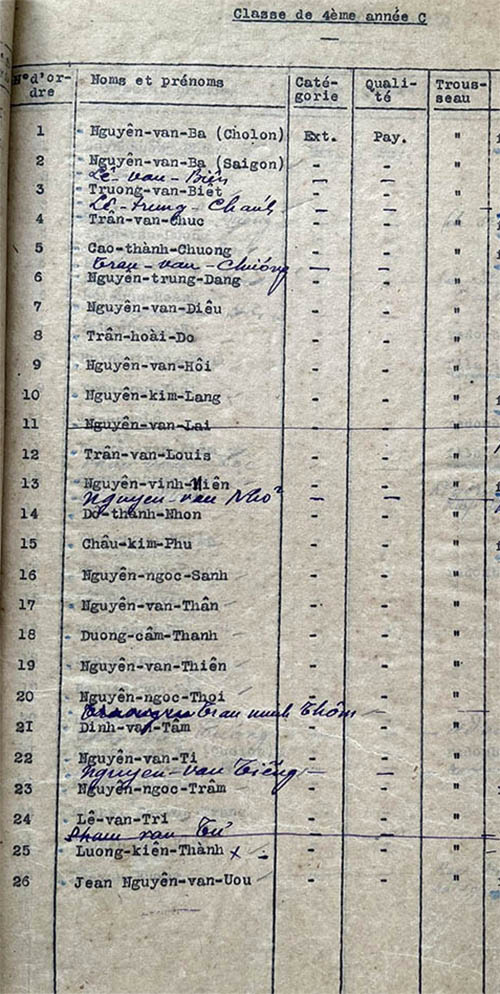 Classe de 4ème année C
N°d'or-dre Noms et prénoms Caté-gorie Quali-té Trous-seau
1 Nguyên-van-Ba (Cholon) Ext. Pay. "
2 Nguyên-van-Ba (Saigon) - - "
Lê-van-Biên - -
3 Truong-van-Biêt - - "
Lê-trung-Chanh - -
4 Trân-van-Chuc - - "
5 Cao-thành-Chuong - - "
Tran-van-Chuóng - -
6 Nguyên-trung-Dang - - "
7 Nguyên-van-Diêu - - "
8 Trân-hoài-Do - - "
9 Nguyên-van-Hôi - - "
10 Nguyên-kim-Lang - - "
11 Nguyên-van-Lai - - "
12 Trân-van-Louis - - "
13 Nguyên-vinh-Niên - - "
Nguyen-van Nhỏ - -
14 Dô-thành-Nhon - - "
15 Châu-kim-Phu - - "
16 Nguyên-ngoc-Sanh - - "
17 Nguyên-van-Thân - - "
18 Duong-câm-Thanh - - "
19 Nguyên-van-Thiên - - "
20 Nguyên-ngoc-Thoi - - "
Tran minh Thôm -
21 Dinh-van-Tâm - - "
22 Nguyên-van-Ti - - "
Nguyen-van Tiếng - -
23 Nguyên-ngoc-Trâm - - "
24 Lê-van-Tri - - "
Pham van Tú
25 Luong-kiên-Thành x - - "
26 Jean Nguyên-van-Uou - - "